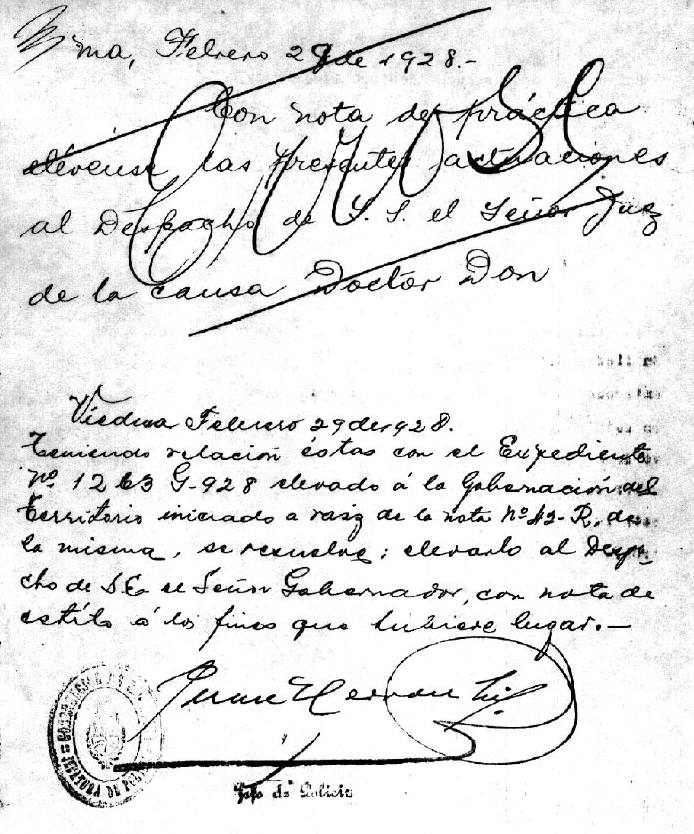 Vma, Febrero 29 de 1928.-
Con nota de práctica
elévense las presentes actuaciones
al Despacho de S. S. el Señor Juez
de la causa Doctor Don
Viedma Febrero 29 de 928.
Teniendo relación éstas con el Expediente
Nº 1263 G-928 elevado á la Gobernación del
Territorio iniciado a raiz de la nota Nº 42-R, de
la misma, se resuelve; elevarlo al Despa-
cho de S.E. el Señor Gobernador, con nota de
estilo á los fines que hubiere lugar.-
Jefe de Policia